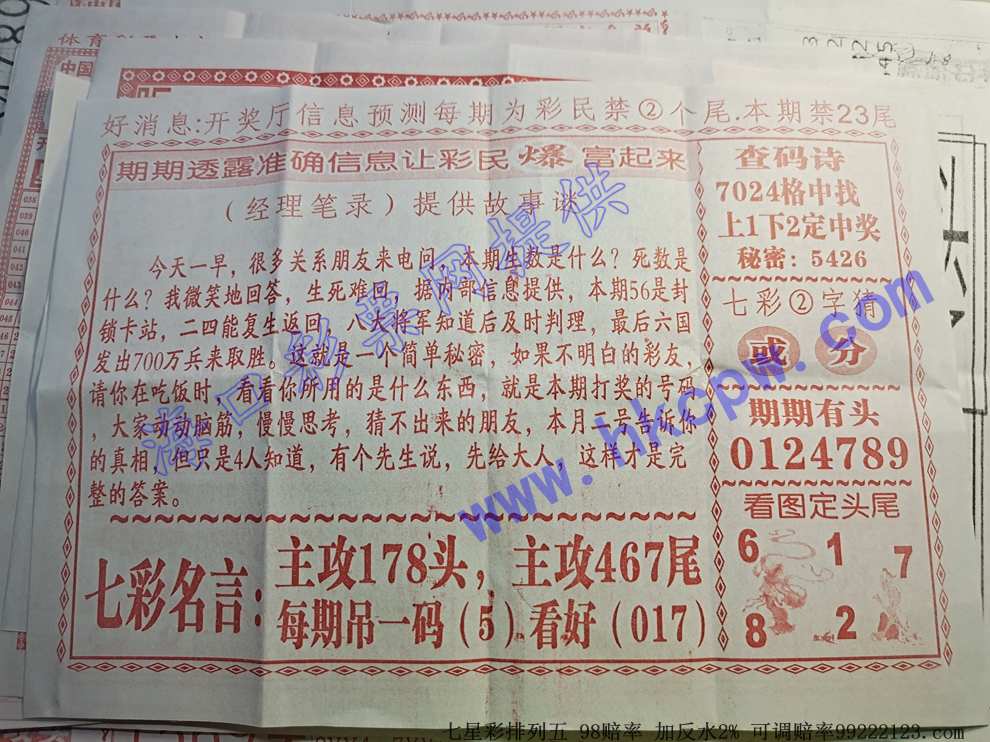 好消息:开奖厅信息预测每期为彩民禁②个尾.本期禁23尾
期期透露准确信息让彩民爆富起来
(经理笔录)提供故事谜
今天一早，很多关系朋友来电问，本期生数是什么？死数是
什么？我微笑地回答，生死难回，据内部信息提供，本期56是封
锁卡站，二四能复生返回，八大将军知道后及时判理，最后六国
发出700万兵来取胜。这就是一个简单秘密，如果不明白的彩友，
请你在吃饭时，看看你所用的是什么东西，就是本期打奖的号码
，大家动动脑筋，慢慢思考，猜不出来的朋友，本月二号告诉你
的真相，但只是4人知道，有个先生说，先给大人，这样才是完
整的答案。
七彩名言:
主攻178头，主攻467尾
每期吊一码(5)看好(017)
查码诗
7024格中找
上1下2定中奖
秘密：5426
七彩②字猜
或 分
期期有头
0124789
看图定头尾
6 1 7
8 2
海口彩票网提供
www.hkcpw.com
七星彩排列五 98赔率 加反水2% 可调赔率99222123.com
体育
中国